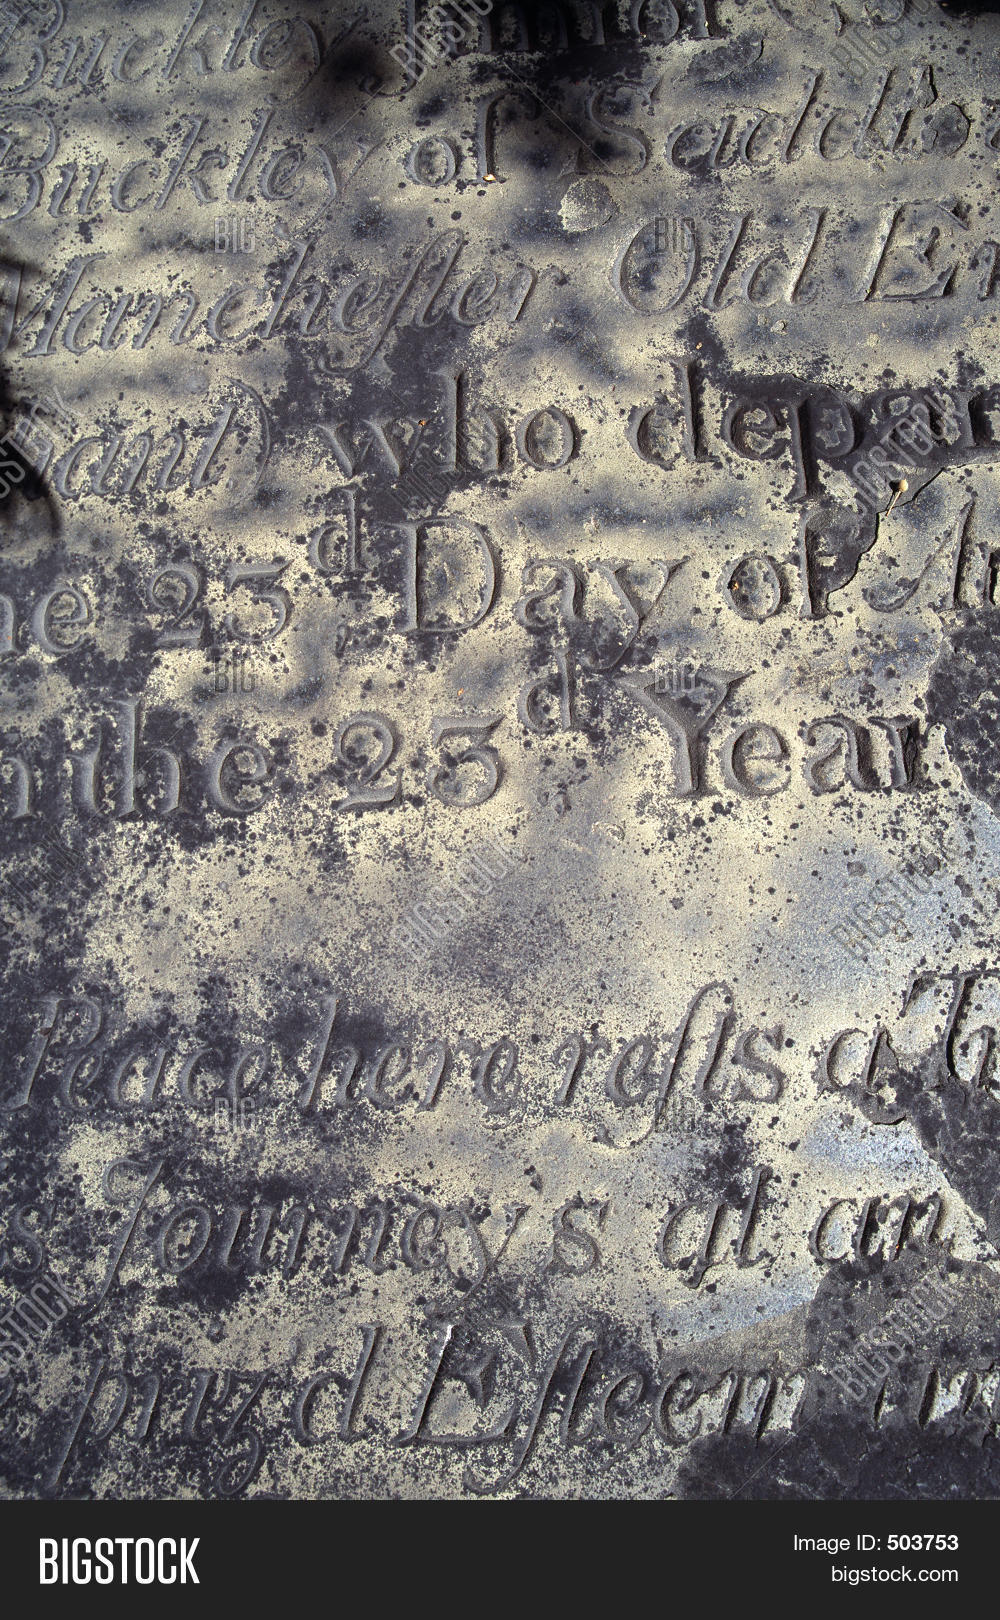 Buckley
Buckley of Saddl
Mancheſter Old En
vant) who depar
he 23d Day of
n the 23d Year
Peace here reſts a
Journey's at an
priz'd Eſteem
BIGSTOCK
Image ID: 503753
bigstock.com